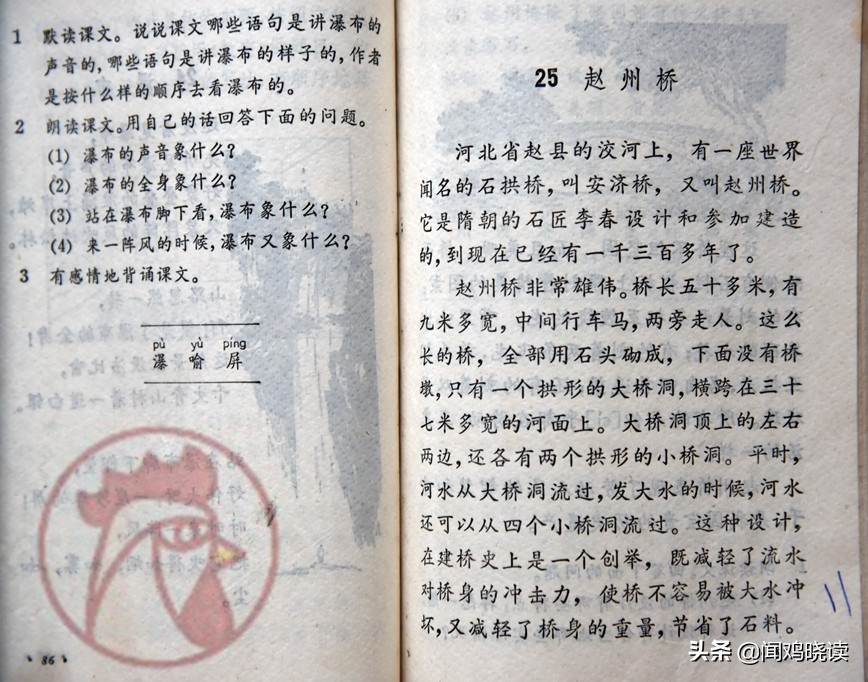 1 默读课文。说说课文哪些语句是讲瀑布的
声音的,哪些语句是讲瀑布的样子的,作者
是按什么样的顺序去看瀑布的。
2 朗读课文。用自己的话回答下面的问题。
(1) 瀑布的声音象什么?
(2) 瀑布的全身象什么?
(3) 站在瀑布脚下看,瀑布象什么?
(4) 来一阵风的时候,瀑布又象什么?
3 有感情地背诵课文。
pù yù píng
瀑 喻 屏
86
25 赵州桥
河北省赵县的洨河上,有一座世界
闻名的石拱桥,叫安济桥,又叫赵州桥。
它是隋朝的石匠李春设计和参加建造
的,到现在已经有一千三百多年了。
赵州桥非常雄伟。桥长五十多米,有
九米多宽,中间行车马,两旁走人。这么
长的桥,全部用石头砌成,下面没有桥
墩,只有一个拱形的大桥洞,横跨在三十
七米多宽的河面上。大桥洞顶上的左右
两边,还各有两个拱形的小桥洞。平时,
河水从大桥洞流过,发大水的时候,河水
还可以从四个小桥洞流过。这种设计,
在建桥史上是一个创举,既减轻了流水
对桥身的冲击力,使桥不容易被大水冲
坏,又减轻了桥身的重量,节省了石料。
头条 @闻鸡晓读